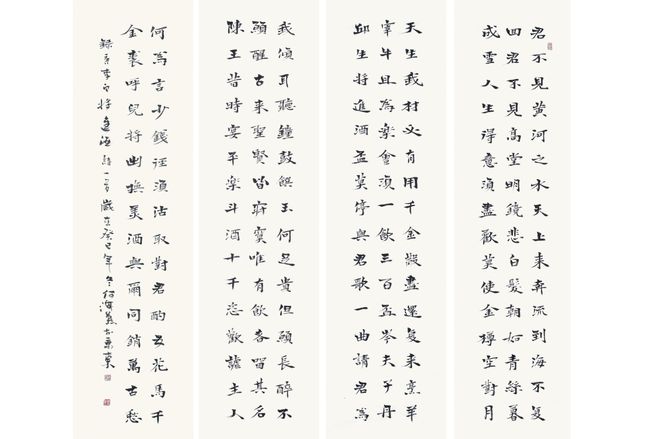 君不見黃河之水天上來奔流到海不復
回君不見高堂明鏡悲白髮朝如青絲暮
成雪人生得意須盡歡莫使金樽空對月
天生我材必有用千金散盡還復來烹羊
宰牛且為樂會須一飲三百盃岑夫子丹
邱生將進酒盃莫停與君歌一曲請君為
我傾耳聽鐘鼓饌玉何足貴但願長醉不
願醒古來聖賢皆寂寞唯有飲者留其名
陳王昔時宴平樂斗酒十千恣歡謔主人
何為言少錢徑須沽取對君酌五花馬千
金裘呼兒將出換美酒與爾同銷萬古愁
錄唐李白將進酒詩一首歲在癸巳年冬